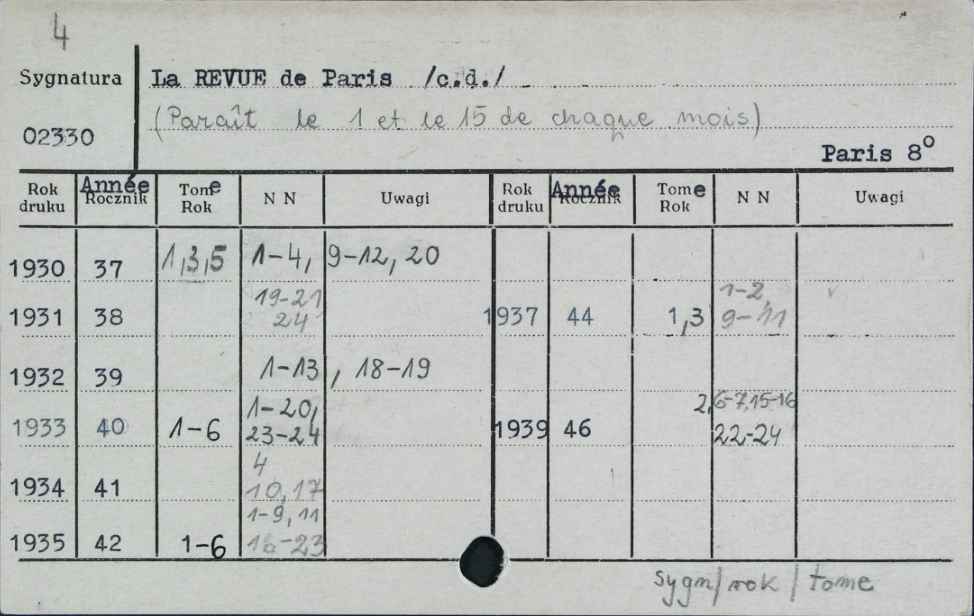 4
Sygnatura La REVUE de Paris /c.d./
(Paraît le 1 et le 15 de chaque mois)
02330
Paris 8º
Rok druku Année Rocznik Tome Rok NN Uwagi Rok druku Année Rocznik Tome Rok NN Uwagi
1930 37 1,3,5 1-4, 9-12, 20
1931 38 19-21 24 1937 44 1,3 1-2, 9-11
1932 39 1-13, 18-19
1933 40 1-6 1-20, 23-24 1939 46 2,6-7,15-16 22-24
1934 41 4 10,17
1935 42 1-6 1-9, 11 16-23
sygn/rok/tome